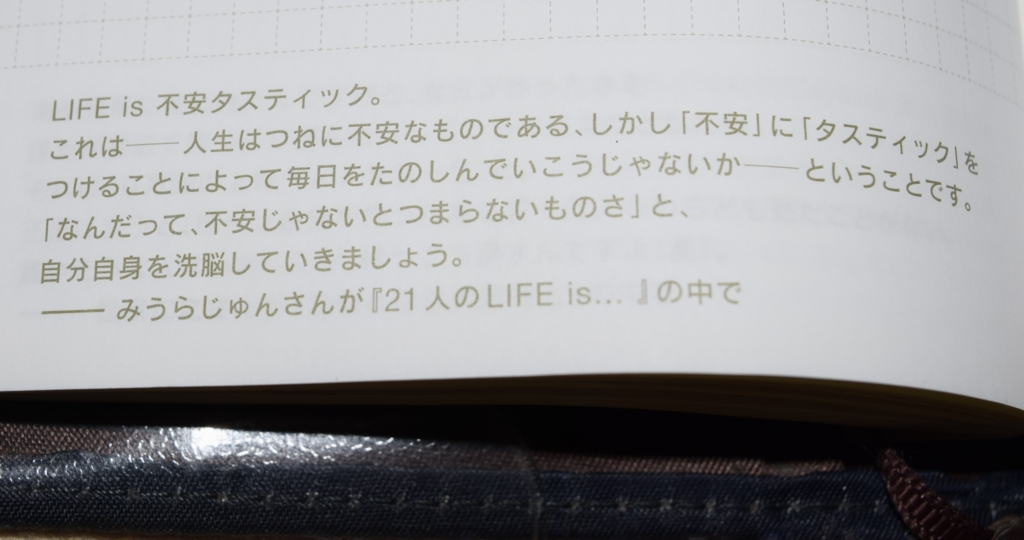 LIFE is 不安タスティック。
これは──人生はつねに不安なものである、しかし「不安」に「タスティック」を
つけることによって毎日をたのしんでいこうじゃないか──ということです。
「なんだって、不安じゃないとつまらないものさ」と、
自分自身を洗脳していきましょう。
── みうらじゅんさんが『21人のLIFE is… 』の中で